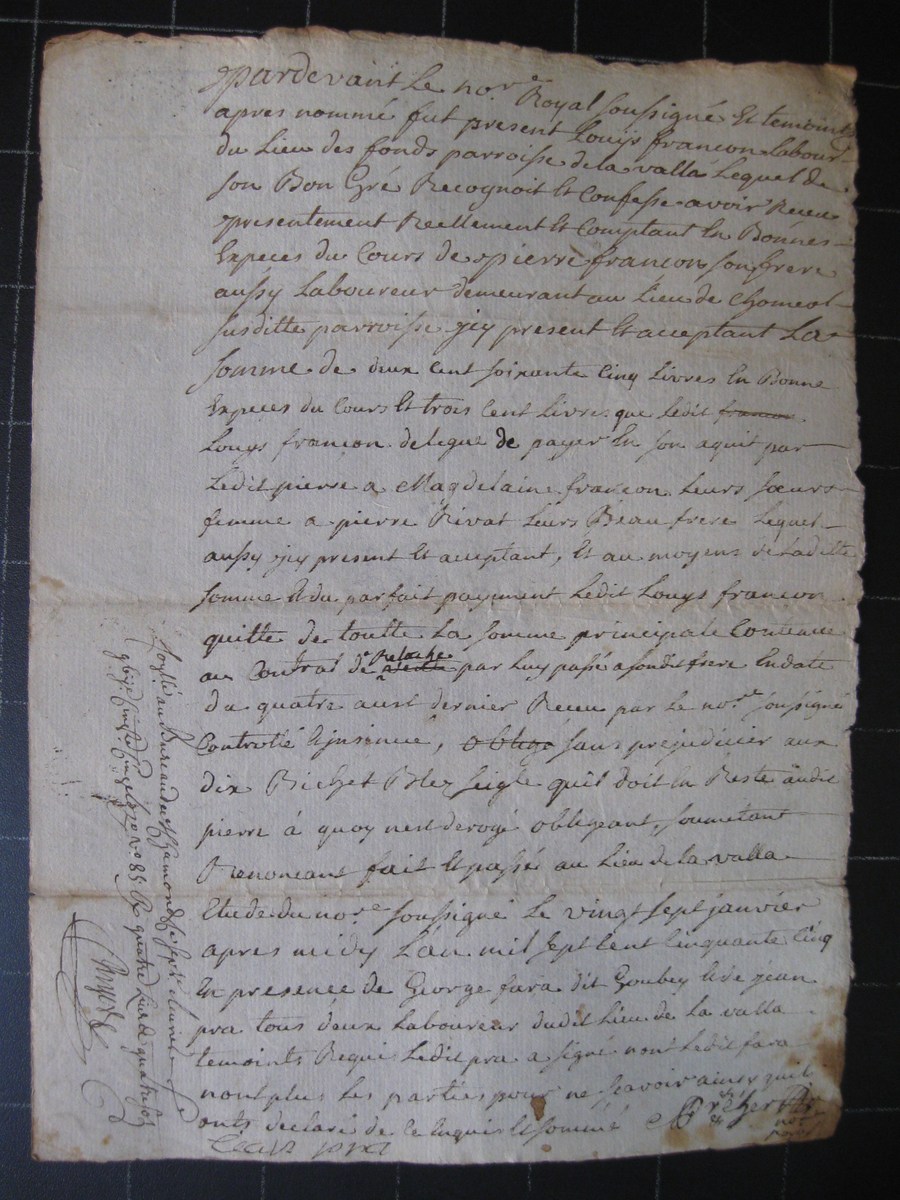 Pardevant Le no.re Royal soussigné Et temoints
apres nommé fut present Louys francon Labour.r
du Lieu des fonds parroisse de la valla Lequel de
son Bon Gré Recognoit Et Confesse avoir Receu
presentement Reellement Et Comptant En Bonnes
Expeces du Cours de pierre francon son frere
aussy Laboureur demeurant au Lieu de Chomeol
susditte parroisse jcy present Et acceptant La
somme de deux Cent soixante Cinq Livres En Bonne
Expeces du Cours Et trois Cent Livres que Ledit francon
Louys francon delegue de payer En son aquit par
Ledit pierre a Magdelaine francon Leurs sœurs
femme a pierre Rivat Leurs Beau frere Lequel
aussy jcy present Et acceptant, Et au moyens de Laditte
somme Et du parfait payement Ledit Louys francon
quitte de toutte La somme principale Contenue
au Contrat de Relache par Luy passé a sondit frere En date
du quatre aust dernier Receu par Le no.re soussigné
Controllé Et jnsinué, obligé sans prejudicier aux
dix Bichet Blez seigle quil doit En Reste audit
pierre à quoy nest derogé obligeant, soumetant
Renoncant fait Et passé au Lieu de La valla
Etude du no.re soussigné Le vingt sept janvier
apres midy L'an mil sept Cent Cinquante Cinq
En presence de George fara dit Goubey Et de jean
pra tous deux Laboureur dudit Lieu de La valla
temoints Requi Ledit pra a signé non Ledit fara
non plus Les parties pour ne scavoir ainsy quil
onts declaré de Ce Enquis Et sommé
jean pra
au Bureau de St Chamond Le sept
quatre